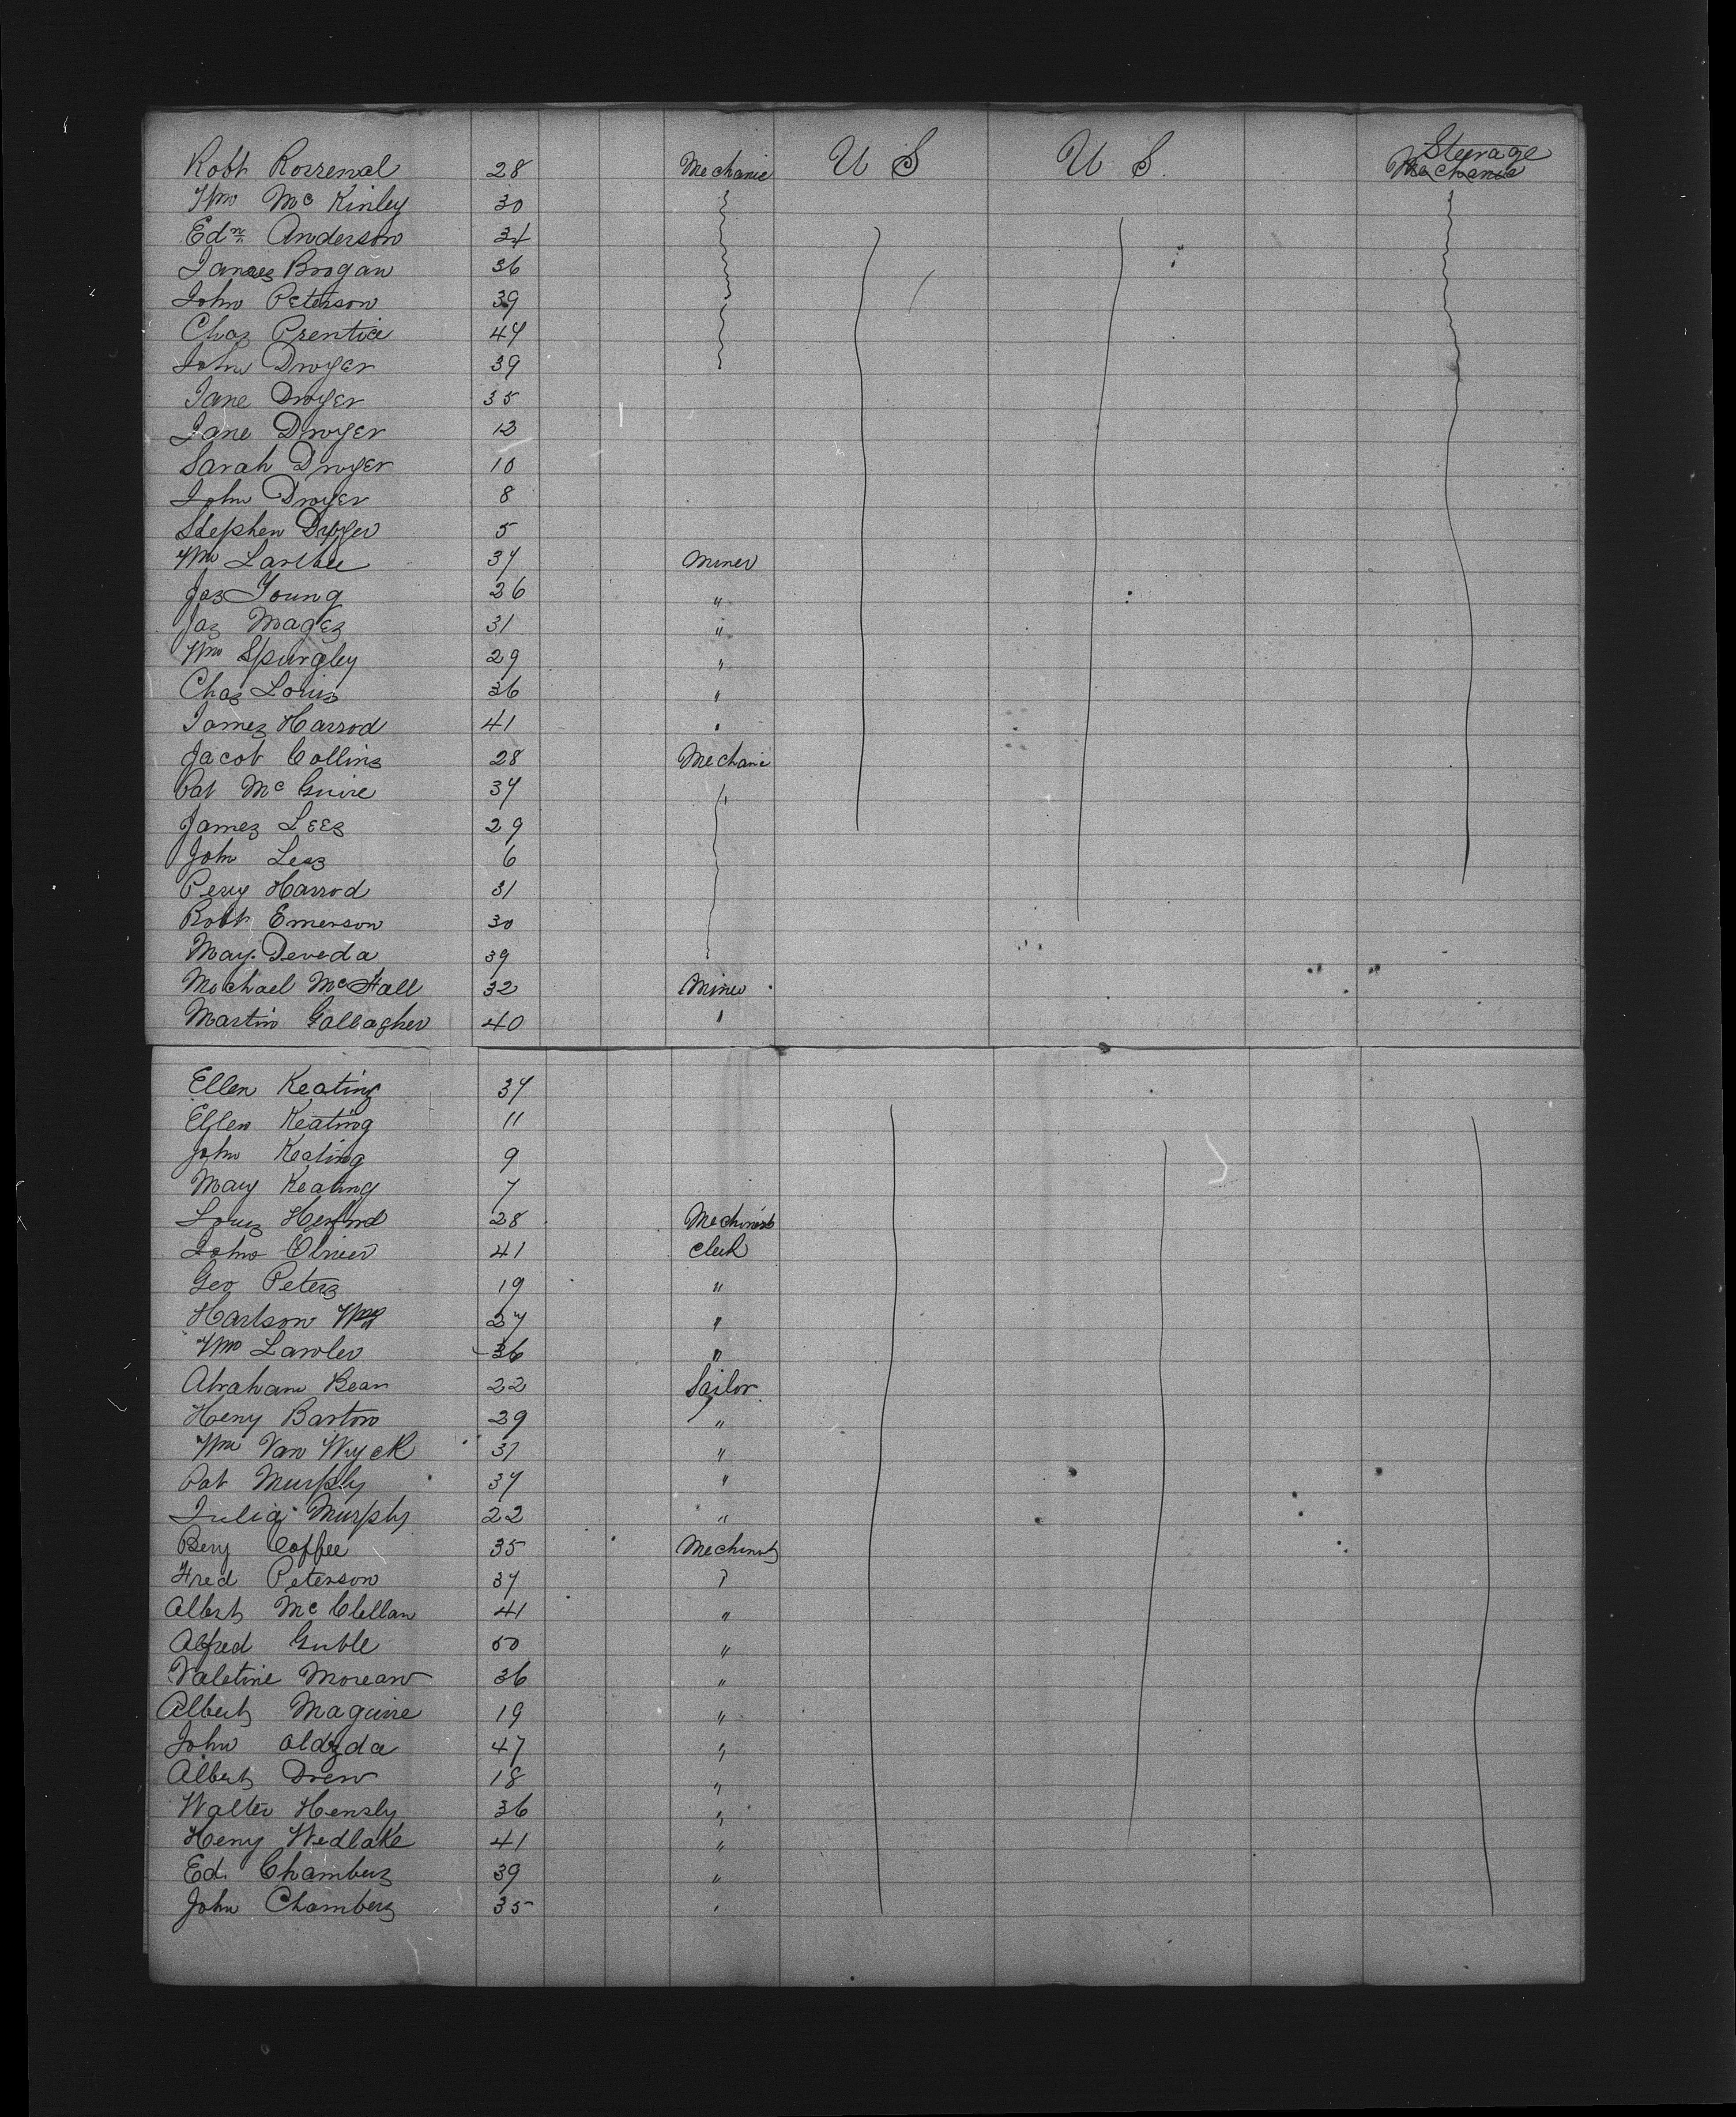 Robt Rozzenal 28 Mechanic U S U S. Steerage Mechanic
Wm Mc Kinley 30
Edn Anderson 34
James Brogan 36
John Peterson 39
Chas Prentice 47
John Dwyer 39
Jane Dwyer 35
Jane Dwyer 12
Sarah Dwyer 10
John Dwyer 8
Stephen Dwyer 5
Wm Larthee 37 Miner
Jas Young 26 "
Jas Magez 31 "
Wm Spurgley 29 "
Chas Louis 36 "
James Harrod 41 "
Jacob Collins 28 Mechanic
Pat Mc Guire 37
James Lees 29
John Lees 6
Perry Harrod 31
Robt Emerson 30
May Deveda 39
Michael McFall 32 Miner
Martin Gallagher 40 "
Ellen Keating 37
Ellen Keating 11
John Keating 9
Mary Keating 7
Louis 28 Mechinist
John Olivier 41 Clerk
Geo Peters 19 "
Harlson Wm 27 "
Wm Lawler 36 "
Abraham Bear 22 Sailor
Heny Barton 29 "
Wm Van Wyck 31 "
Pat Murphy 37 "
Julia Murphy 22 "
Benj Coffee 35 Mechinist
Fred Peterson 37 "
Albert Mc Clellan 41 "
Alfred Guble 50 "
Valetine Moreau 36 "
Albert Maguire 19 "
John 47 "
Albert Drew 18 "
Walter Hensly 36 "
Heny Wedlake 41 "
Ed. Chambers 39 "
John Chambers 35 "